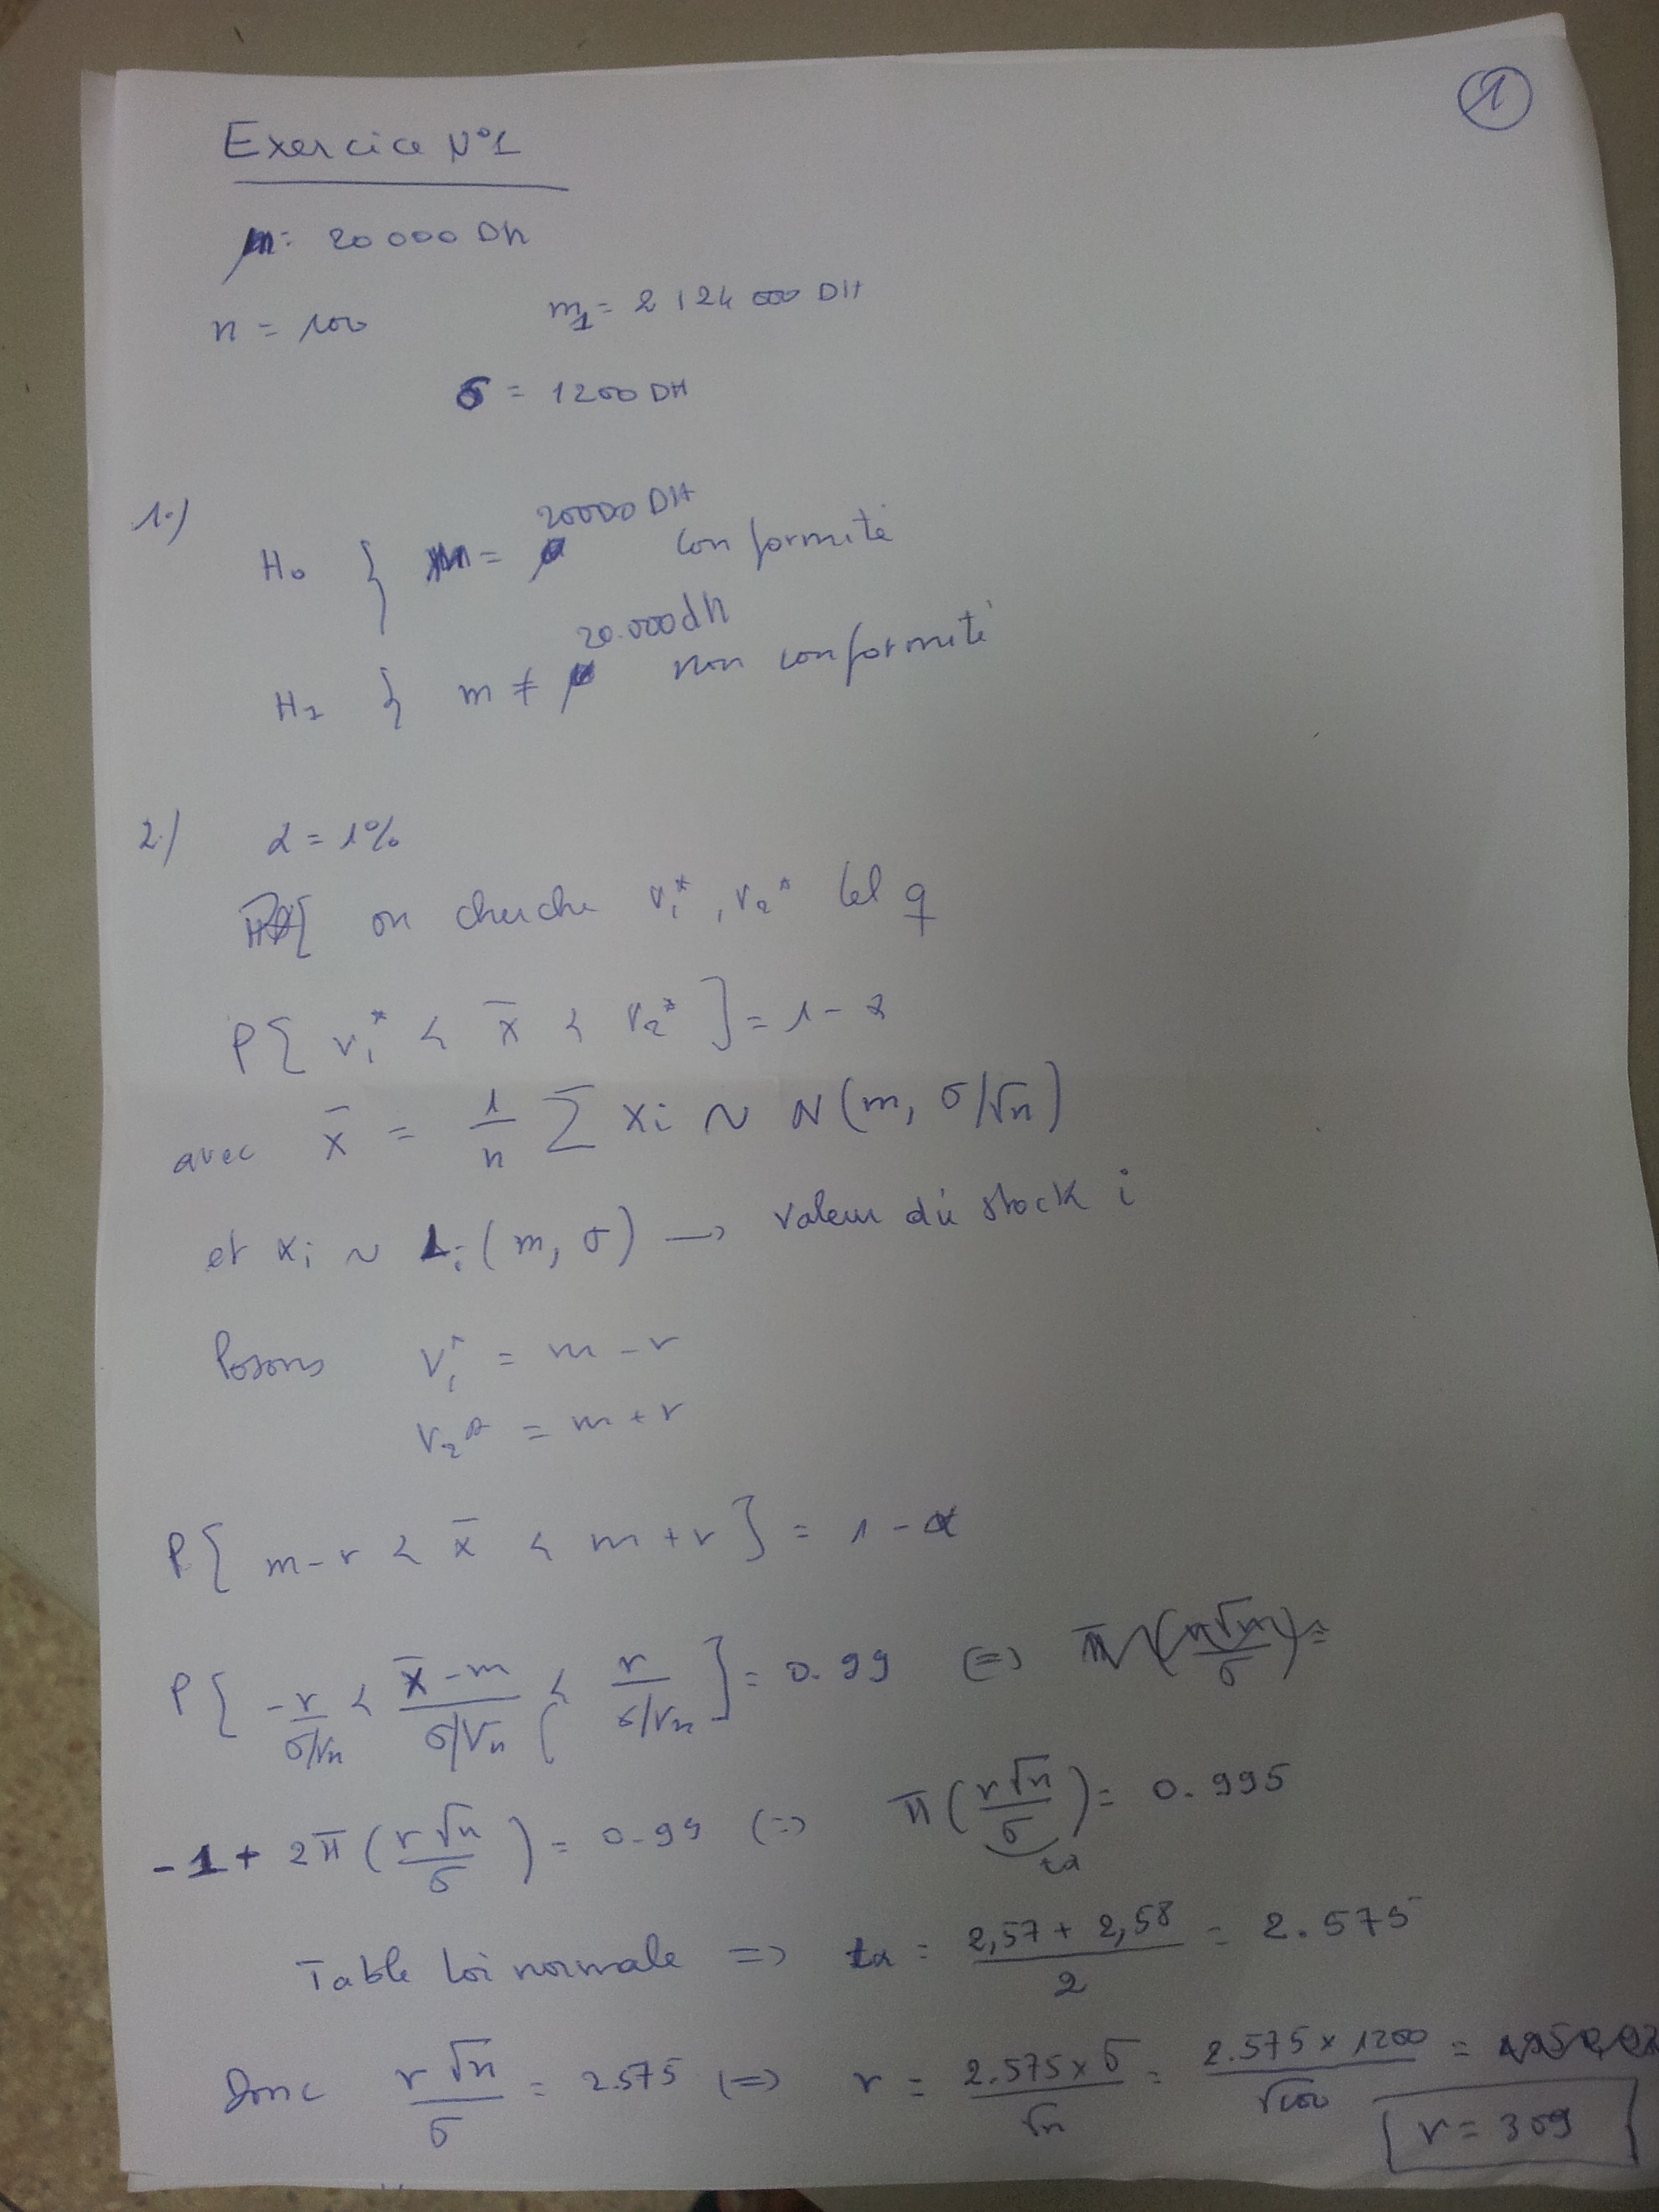 1
Exercice N°1
m = 20 000 Dh
n = 100 m1 = 2 124 000 DH
σ = 1200 DH
1.)
H0 { m = 20000 DH conformité
H1 { m ≠ 20.000 dh non conformité
2.) α = 1%
on cherche v1*, v2* tel q
P{ v1* < x̄ < v2* } = 1 - α
avec x̄ = 1/n Σ xi ~ N(m, σ/√n)
et xi ~ Li(m, σ) → valeur du stock i
Posons v1* = m - r
v2* = m + r
P{ m - r < x̄ < m + r } = 1 - α
P{ -r/(σ/√n) < (x̄ - m)/(σ/√n) < r/(σ/√n) } = 0.99 (=)
-1 + 2π(r√n/σ) = 0.99 (=) π(r√n/σ) = 0.995
tα
Table loi normale => tα = (2,57 + 2,58)/2 = 2.575
Donc r√n/σ = 2.575 (=) r = 2.575 x σ/√n = 2.575 x 1200/√100 =
r = 309